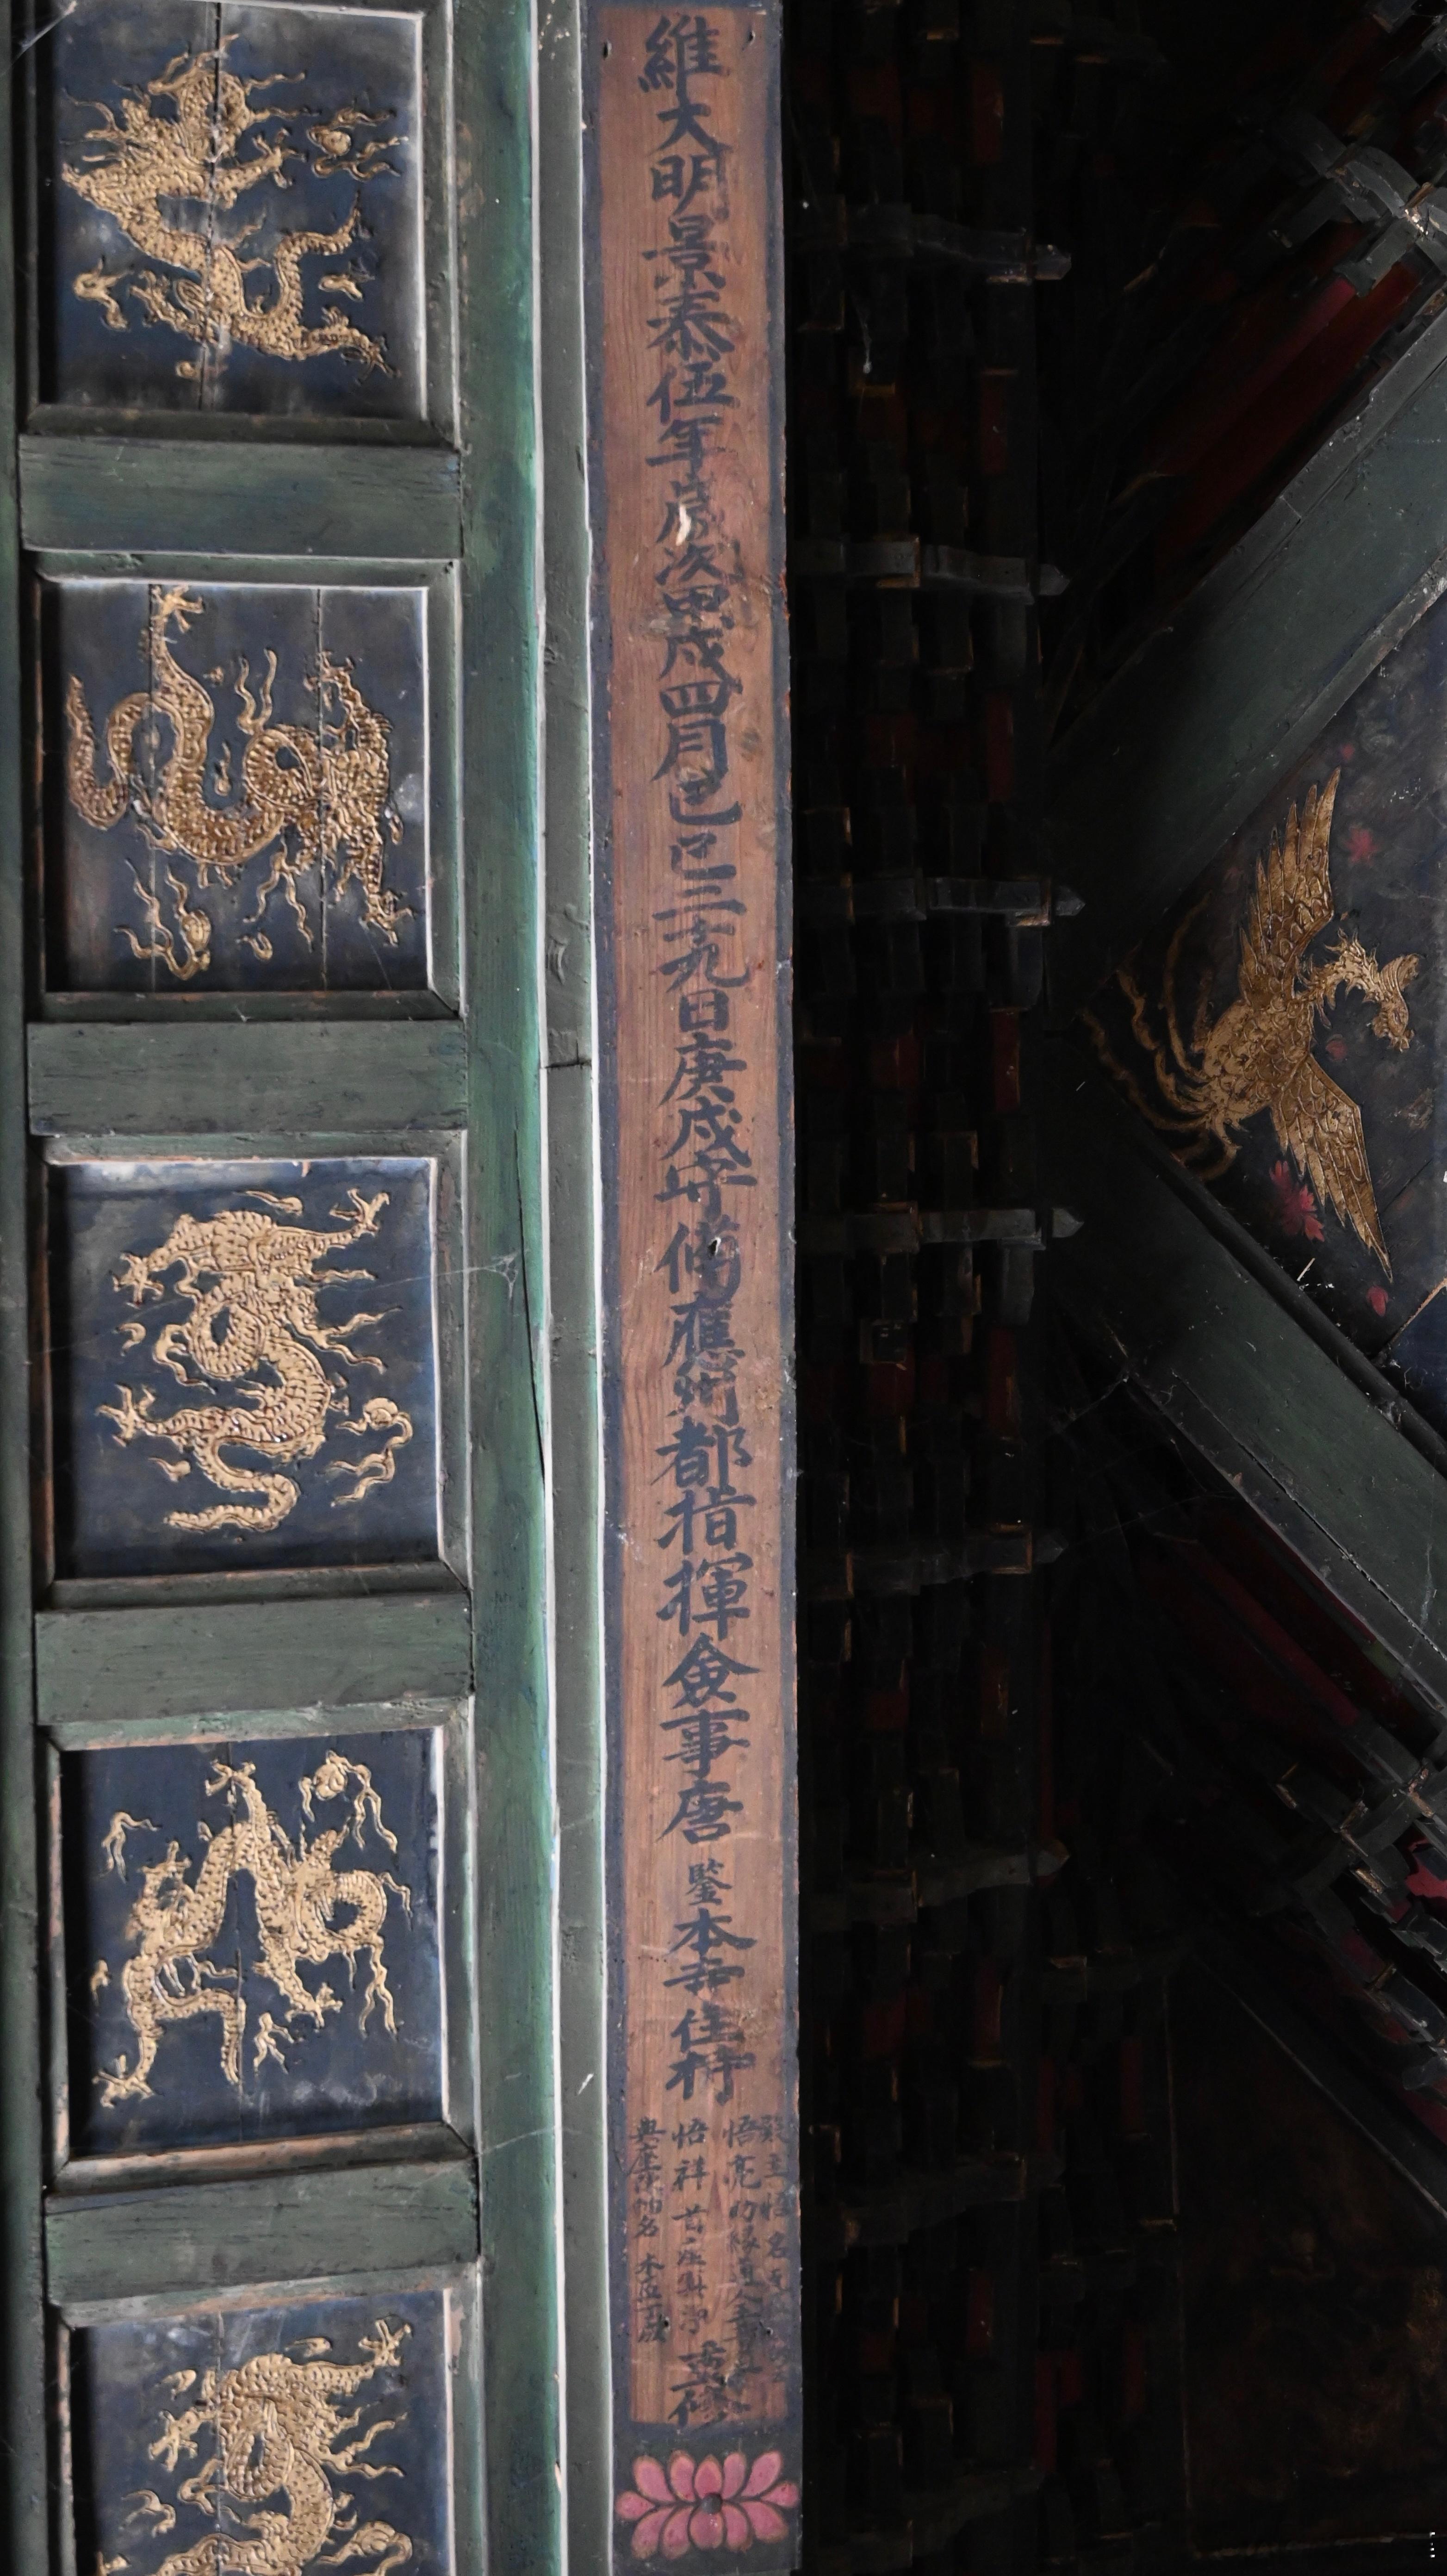 維大明景泰伍年歲次甲戌四月己巳二十九日庚戌守備應州都指揮僉事唐鑒本寺住持
殿主悟名
悟亮功緣道人
悟祥首座
典座 名木匠
重修